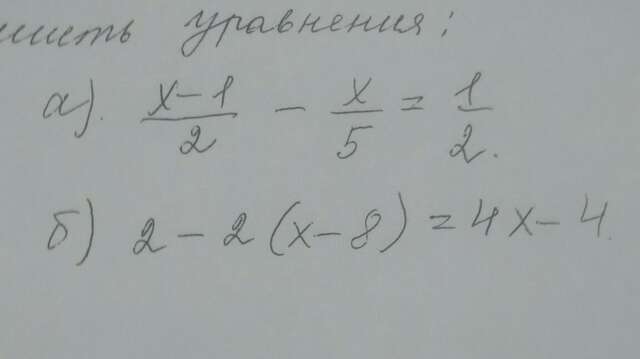 уравнения:
а). (x-1)/2 - x/5 = 1/2.
б) 2-2(x-8)=4x-4.